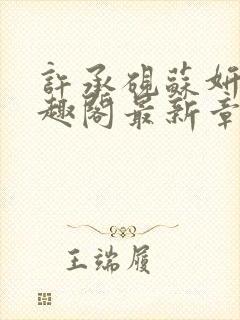 許承硯蘇妍
趣閣最新章
王端履